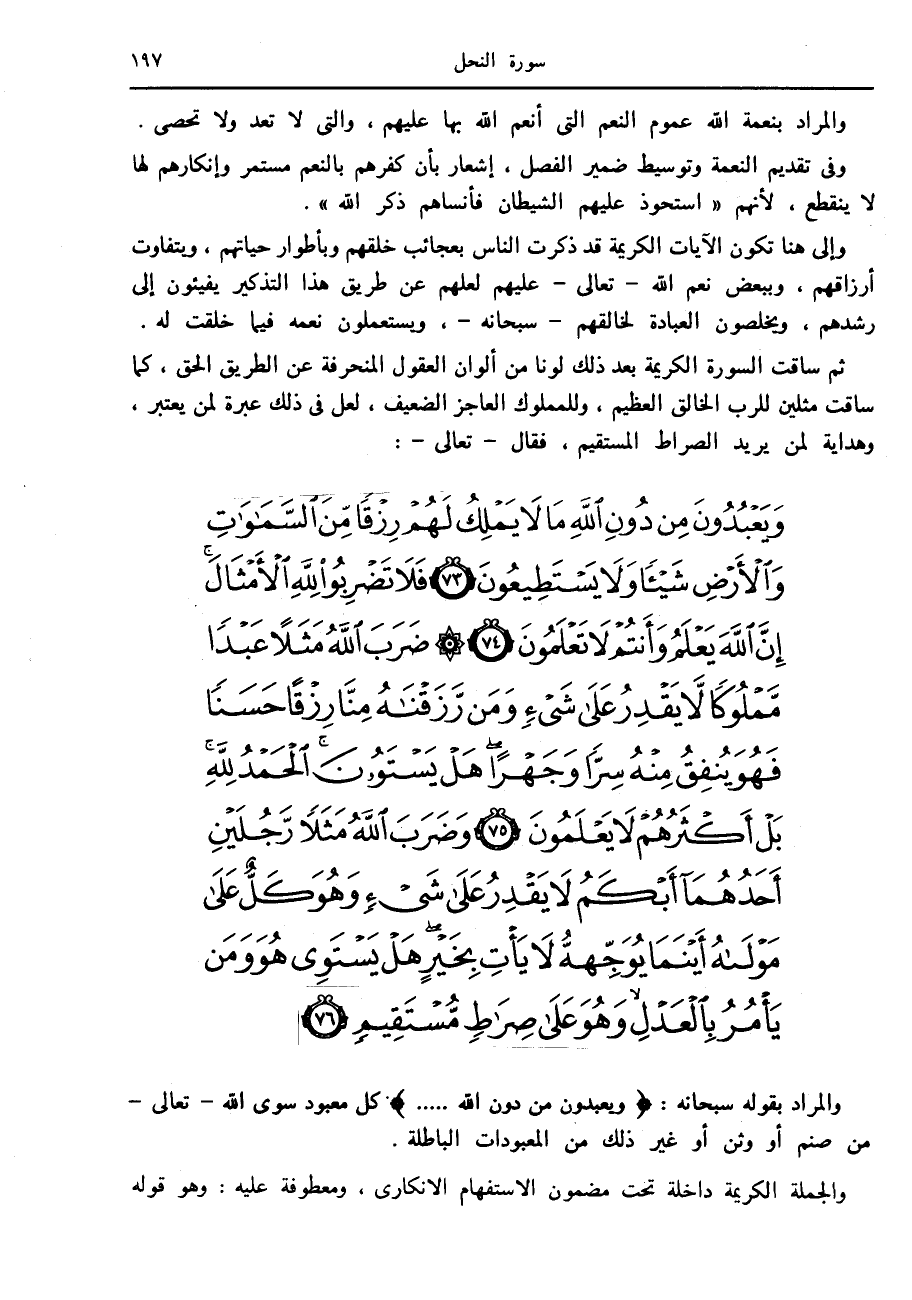 سورة النحل ١٩٧
والمراد بنعمة الله عموم النعم التى أنعم الله بها عليهم ، والتى لا تعد ولا تحصى .
وفى تقديم النعمة وتوسيط ضمير الفصل ، إشعار بأن كفرهم بالنعم مستمر وإنكارهم لها
لا ينقطع ، لأنهم « استحوذ عليهم الشيطان فأنساهم ذكر الله » .
وإلى هنا تكون الآيات الكريمة قد ذكرت الناس بعجائب خلقهم وبأطوار حياتهم ، ويتفاوت
أرزاقهم ، وببعض نعم الله – تعالى – عليهم لعلهم عن طريق هذا التذكير يفيئون إلى
رشدهم ، ويخلصون العبادة لخالقهم – سبحانه – ، ويستعملون نعمه فيما خلقت له .
ثم ساقت السورة الكريمة بعد ذلك لونا من ألوان العقول المنحرفة عن الطريق الحق ، كما
ساقت مثلين للرب الخالق العظيم ، وللمملوك العاجز الضعيف ، لعل فى ذلك عبرة لمن يعتبر ،
وهداية لمن يريد الصراط المستقيم ، فقال – تعالى – :
وَيَعْبُدُونَ مِن دُونِ ٱللَّهِ مَا لَا يَمْلِكُ لَهُمْ رِزْقًا مِّنَ ٱلسَّمَٰوَٰتِ
وَٱلْأَرْضِ شَيْـًٔا وَلَا يَسْتَطِيعُونَ ٧٣ فَلَا تَضْرِبُوا۟ لِلَّهِ ٱلْأَمْثَالَ ۚ
إِنَّ ٱللَّهَ يَعْلَمُ وَأَنتُمْ لَا تَعْلَمُونَ ٧٤ ۞ ضَرَبَ ٱللَّهُ مَثَلًا عَبْدًا
مَّمْلُوكًا لَّا يَقْدِرُ عَلَىٰ شَىْءٍ وَمَن رَّزَقْنَٰهُ مِنَّا رِزْقًا حَسَنًا
فَهُوَ يُنفِقُ مِنْهُ سِرًّا وَجَهْرًا ۖ هَلْ يَسْتَوُۥنَ ۚ ٱلْحَمْدُ لِلَّهِ ۚ
بَلْ أَكْثَرُهُمْ لَا يَعْلَمُونَ ٧٥ وَضَرَبَ ٱللَّهُ مَثَلًا رَّجُلَيْنِ
أَحَدُهُمَآ أَبْكَمُ لَا يَقْدِرُ عَلَىٰ شَىْءٍ وَهُوَ كَلٌّ عَلَىٰ
مَوْلَىٰهُ أَيْنَمَا يُوَجِّههُّ لَا يَأْتِ بِخَيْرٍ ۖ هَلْ يَسْتَوِى هُوَ وَمَن
يَأْمُرُ بِٱلْعَدْلِ ۙ وَهُوَ عَلَىٰ صِرَٰطٍ مُّسْتَقِيمٍ ٧٦
والمراد بقوله سبحانه : ﴿ ويعبدون من دون الله ..... ﴾ كل معبود سوى الله – تعالى –
من صنم أو وثن أو غير ذلك من المعبودات الباطلة .
والجملة الكريمة داخلة تحت مضمون الاستفهام الانكارى ، ومعطوفة عليه : وهو قوله